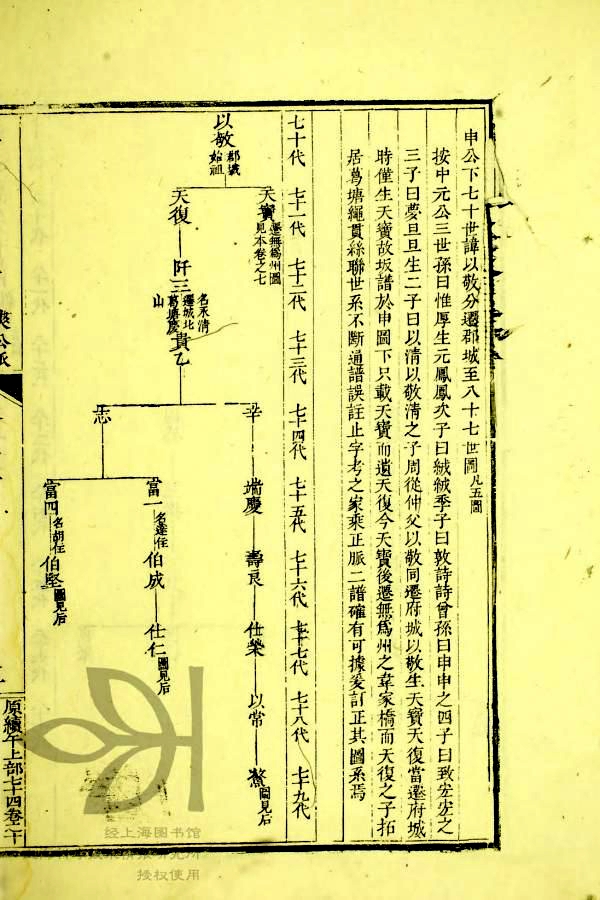 申公下七十世諱以敬分遷郡城至八十七世圖凡五圖
按中元公三世孫曰惟厚生元鳳鳳次子曰絨絨季子曰敦詩詩曾孫曰申申之四子曰致宏宏之
三子曰夢旦旦生二子曰以清以敬清之子周從仲父以敬同遷府城以敬生天寶天復當遷府城
時僅生天寶故坂譜於申圖下只載天寶而遺天復今天寶後遷無爲州之韋家橋而天復之子拓
居葛塘繩貫絲聯世系不斷通譜誤註止字考之家乘正脈二譜確有可據爰訂正其圖系焉
七十代
七十一代
七十二代
七十三代
七十四代
七十五代
七十六代
七十七代
七十八代
七十九代
以敬
郡城
始祖
天寶
遷無爲州圖
見本卷之七
天復
阡三
名永清
遷城北
葛塘慶
山
貴乙
辛
端慶
壽良
仕榮
以常
鰲
圖見后
志
富一
名達任
伯成
仕仁
圖見后
富四
名胡任
伯堅
圖見后
公派
原續午上部七十四卷
经上海图书馆
授权使用